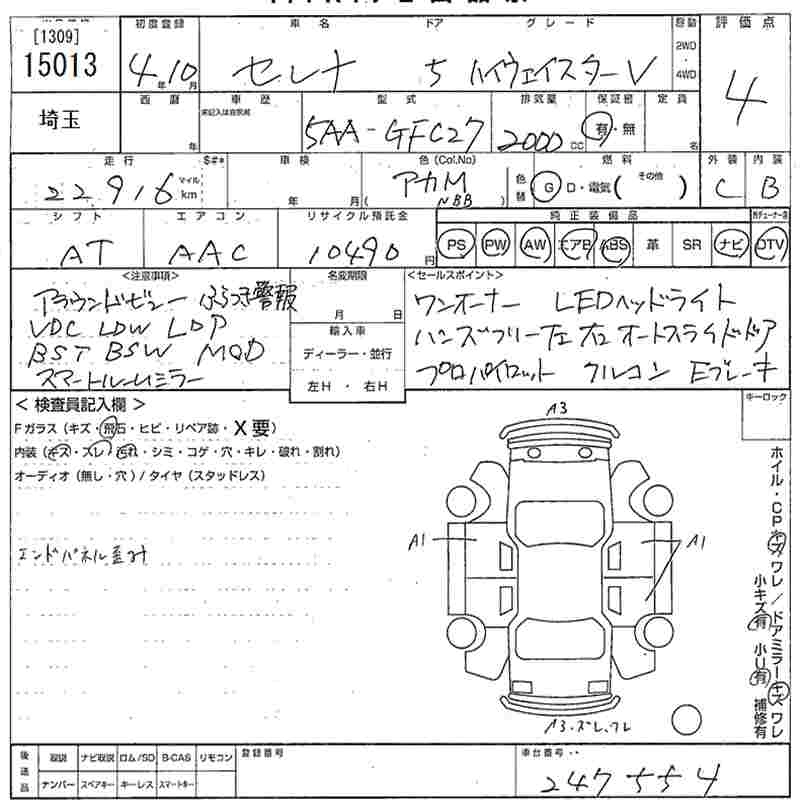 [1309]
15013
埼玉
初度登録 車名 ドア グレード 駆動 評価点
4年10月 セレナ 5 ハイウェイスターV 2WD・4WD 4
西暦 車歴 型式 排気量 保証書 定員
年 未記入は自家用 5AA-GFC27 2000cc 有・無 名
走行 $#* 車検 色(Col.No) 燃料 外装 内装
22916 マイル km 年 月 ( アカM NBB ) 色替 G D・電気( その他 ) C B
シフト エアコン リサイクル預託金 純正装備品
AT AAC 10490円 PS PW AW エアB ABS 革 SR ナビ DTV
<注意事項> 名変期限 <セールスポイント>
アラウンドビュー ふらつき警報
VDC LDW LDP
BST BSW MOD
スマートルームミラー
月 日
輸入車
ディーラー・並行
左H ・ 右H
ワンオーナー LEDヘッドライト
ハンズフリー左右オートスライドドア
プロパイロット クルコン Eブレーキ
< 検査員記入欄 > キーロック
Fガラス(キズ・飛石・ヒビ・リペア跡・X要)
内装(キズ・スレ・汚れ・シミ・コゲ・穴・キレ・破れ・割れ)
オーディオ(無し・穴)/タイヤ(スタッドレス)
エンドパネル歪み
A3
A1
A1
A3・ズレ、ワレ
ホイル・CPキズワレ/ドアミラーキズワレ
小キズ有 小U有 補修有
後送品 取説 ナビ取説 ロム/SD B-CAS リモコン 登録番号 車台番号
ナンバー スペアキー キーレス スマートキー
247554